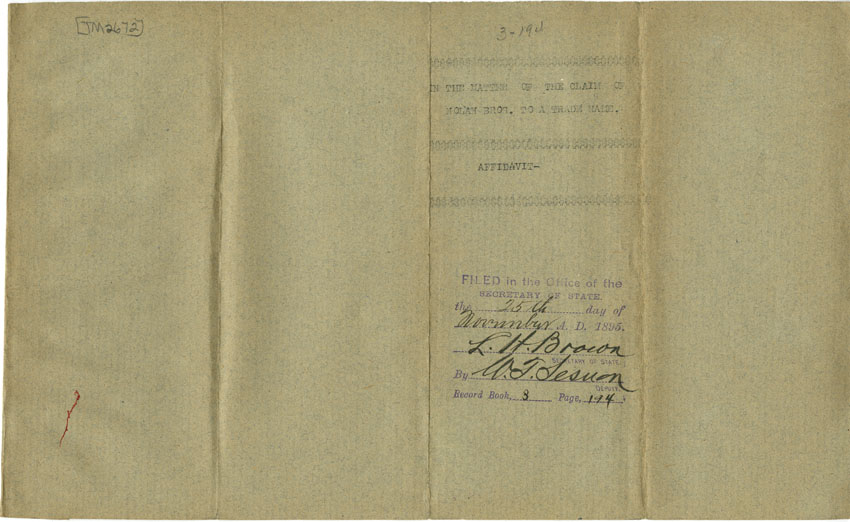 [TM2672]
3-194
IN THE MATTER OF THE CLAIM OF
NOLAN BROS. TO A TRADE NAME.
AFFIDAVIT-
FILED in the Office of the
SECRETARY OF STATE.
the 25th day of
November A. D. 1895.
L. H. Brown
SECRETARY OF STATE
By W. T. Sesnon
DEPUTY.
Record Book, 3 Page, 194